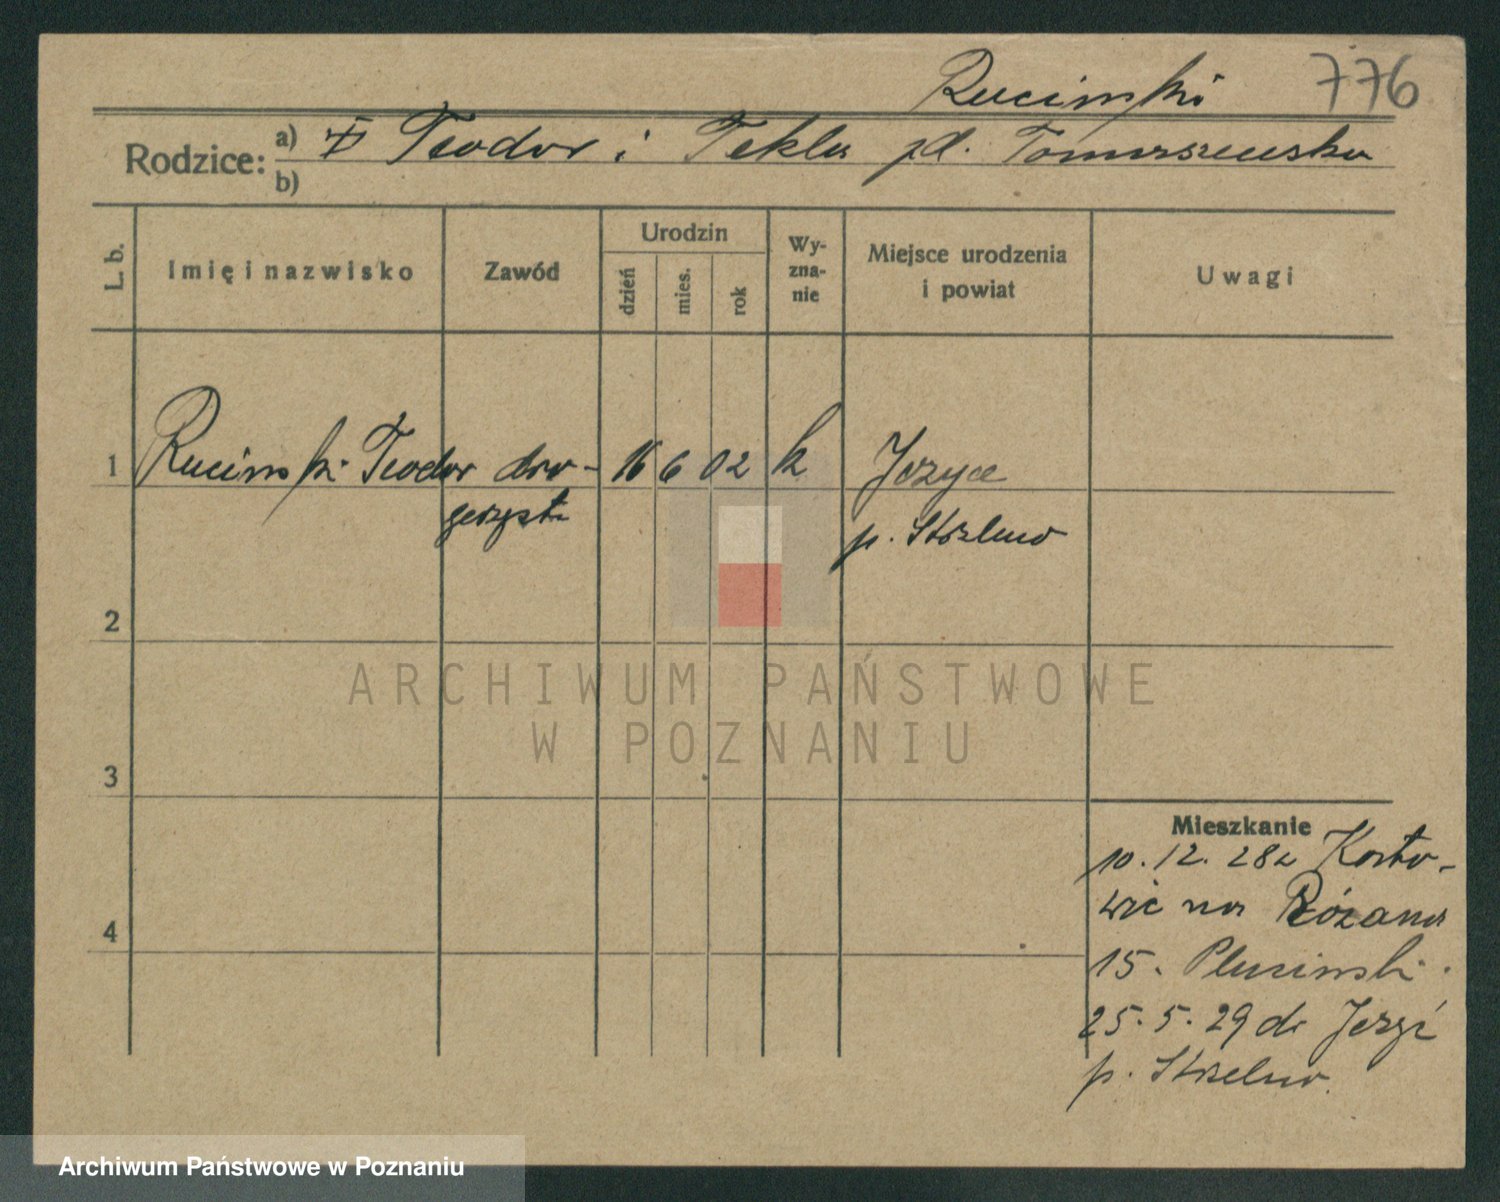 Rucinski 776
Rodzice: a) Teodor i Tekla zd. Tomaszewska
b)
L. b. Imię i nazwisko Zawód Urodzin dzień mies. rok Wy-zna-nie Miejsce urodzenia i powiat Uwagi
1 Rucinski Teodor dro- 16 6 02 k Jerzyce
gerzyst p. Strzelno
2
ARCHIWUM PAŃSTWOWE
W POZNANIU
3
Mieszkanie
10. 12. 28 z Kosto-
wic na Różana
15. Plucinski.
4
25. 5. 29 do
p. Strzelno.
Archiwum Państwowe w Poznaniu